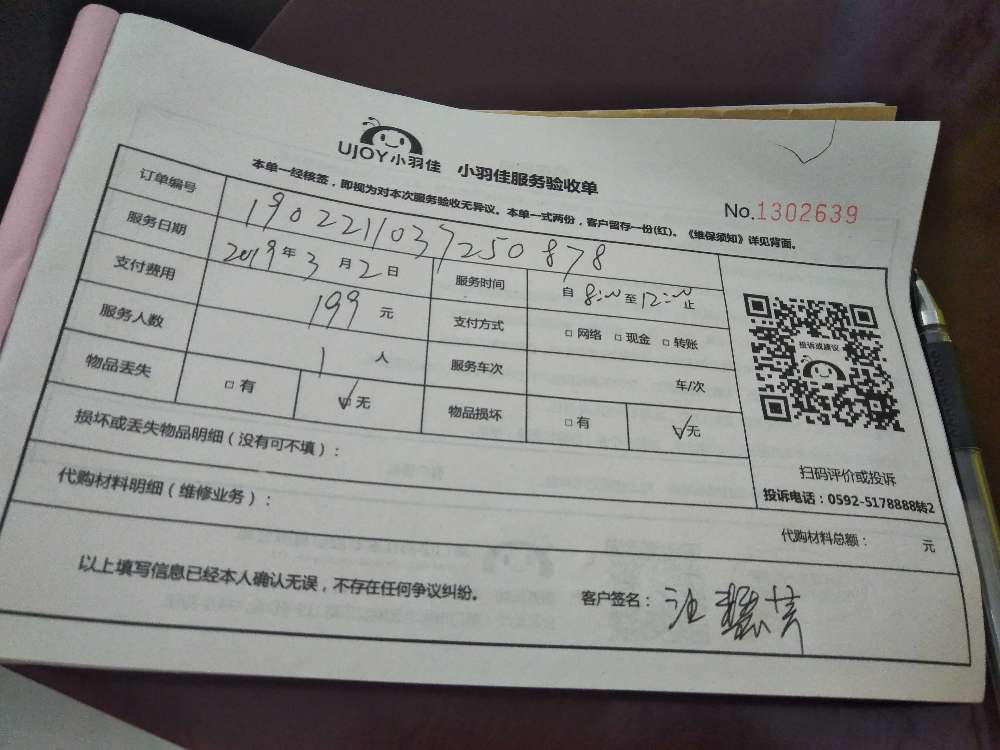 UJOY小羽佳 小羽佳服务验收单
本单一经核签，即视为对本次服务验收无异议。本单一式两份，客户留存一份(红)。《维保须知》详见背面。
No.1302639
订单编号 1902211037250878
服务日期 2019年3月2日 服务时间 自8:00至12:00止
支付费用 199元 支付方式 □网络 □现金 □转账
服务人数 1人 服务车次 车/次
物品丢失 □有 ☑无 物品损坏 □有 ☑无
投诉或建议
扫码评价或投诉
投诉电话：0592-5178888转2
损坏或丢失物品明细（没有可不填）：
代购材料明细（维修业务）：
代购材料总额： 元
以上填写信息已经本人确认无误，不存在任何争议纠纷。 客户签名：